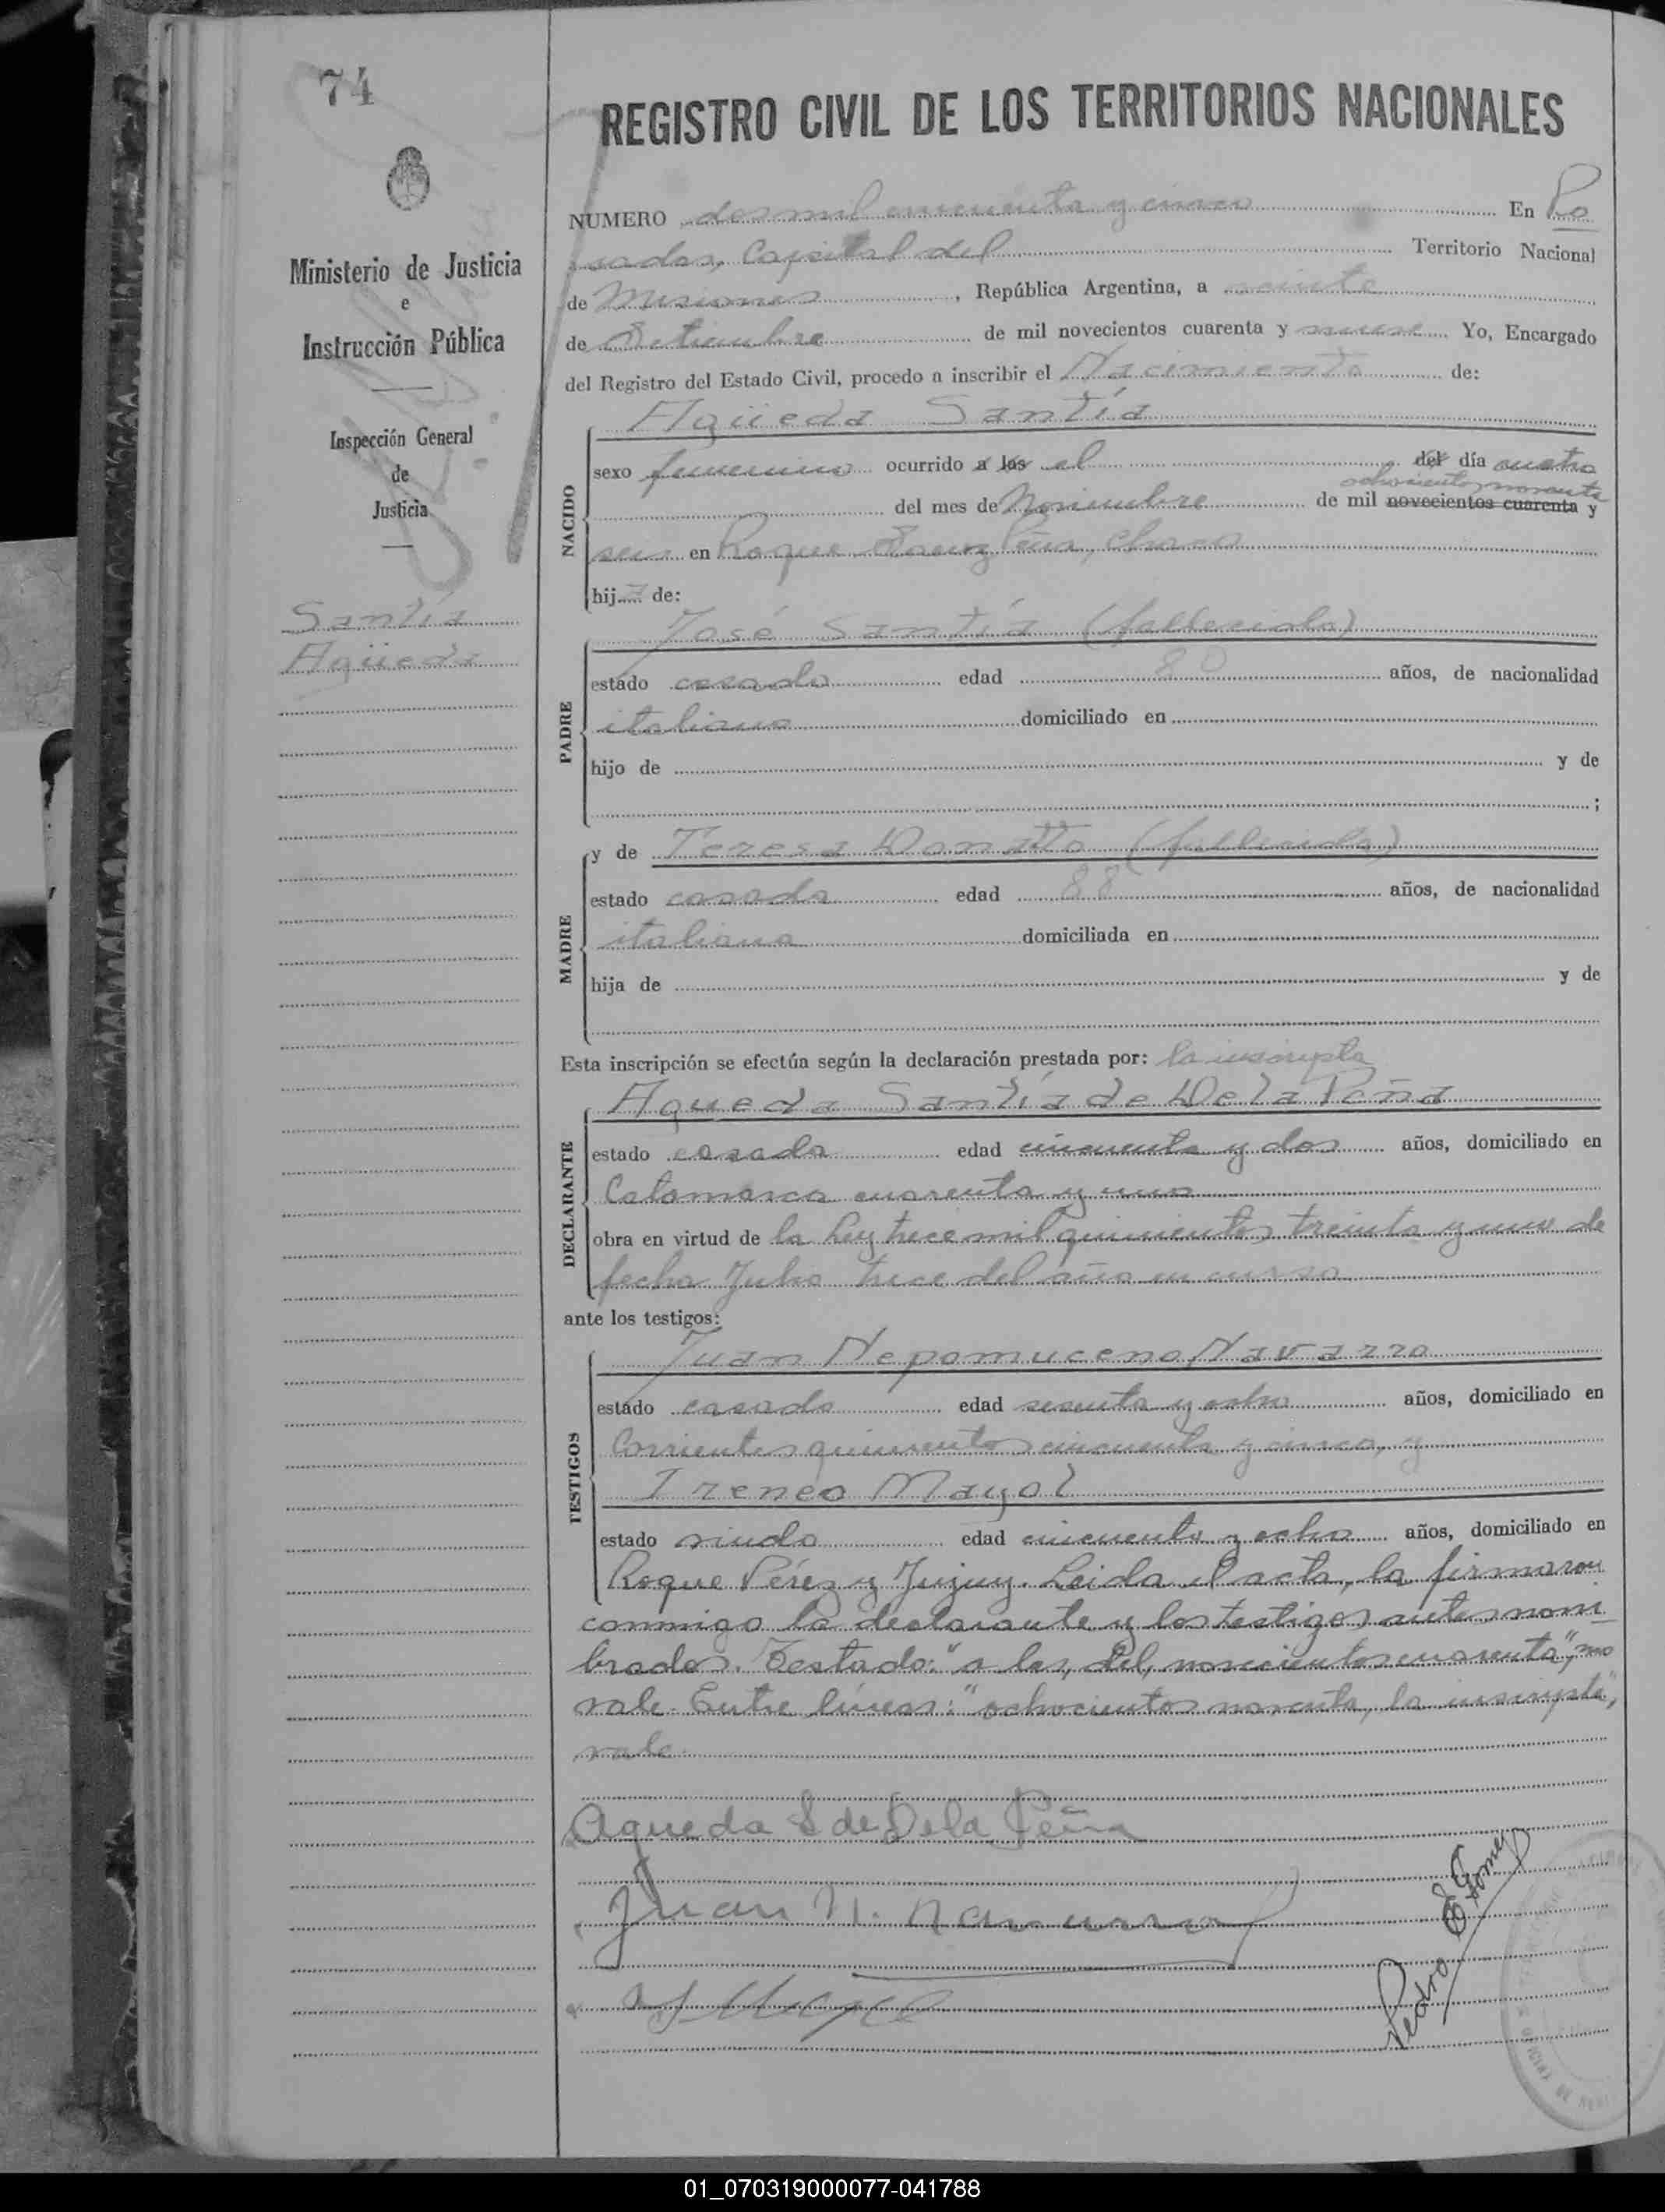 74
Ministerio de Justicia
e
Instrucción Pública
Inspección General
de
Justicia
Santía
Agüeda
REGISTRO CIVIL DE LOS TERRITORIOS NACIONALES
NUMERO dos mil cincuenta y cinco En Po
sadas, Capital del Territorio Nacional
de Misiones, República Argentina, a veinte
de Setiembre de mil novecientos cuarenta y nueve Yo, Encargado
del Registro del Estado Civil, procedo a inscribir el Nacimiento de:
Agüeda Santía
NACIDO
sexo femenino ocurrido a las el del día cuatro
ochocientos noventa
del mes de Noviembre de mil novecientos cuarenta y
seis en Roque Saenz Peña, Chaco
hija de:
PADRE
José Santía (fallecido)
estado casado edad 80 años, de nacionalidad
italiano domiciliado en
hijo de y de
;
MADRE
y de Teresa Donatto (fallecida)
estado casada edad 88 años, de nacionalidad
italiana domiciliada en
hija de y de
Esta inscripción se efectúa según la declaración prestada por: la inscripta
DECLARANTE
Agueda Santía de De la Peña
estado casada edad cincuenta y dos años, domiciliado en
Catamarca cuarenta y uno
obra en virtud de la Ley trece mil quinientos treinta y uno de
fecha Julio trece del año en curso
ante los testigos:
TESTIGOS
Juan Nepomuceno Navarro
estado casado edad sesenta y ocho años, domiciliado en
Corrientes quinientos cincuenta y cinco, y
Ireneo Mayol
estado viudo edad cincuenta y ocho años, domiciliado en
Roque Pérez y Jujuy. Leida el acta, la firmaron
conmigo la declarante y los testigos antes nom
brados. Testado: "a las, del, novecientos cuarenta", no
vale. Entre líneas: "ochocientos noventa, la inscripta",
vale.
Agueda S de De la Peña
Juan N. Navarro
Pedro E Gomez
01_070319000077-041788